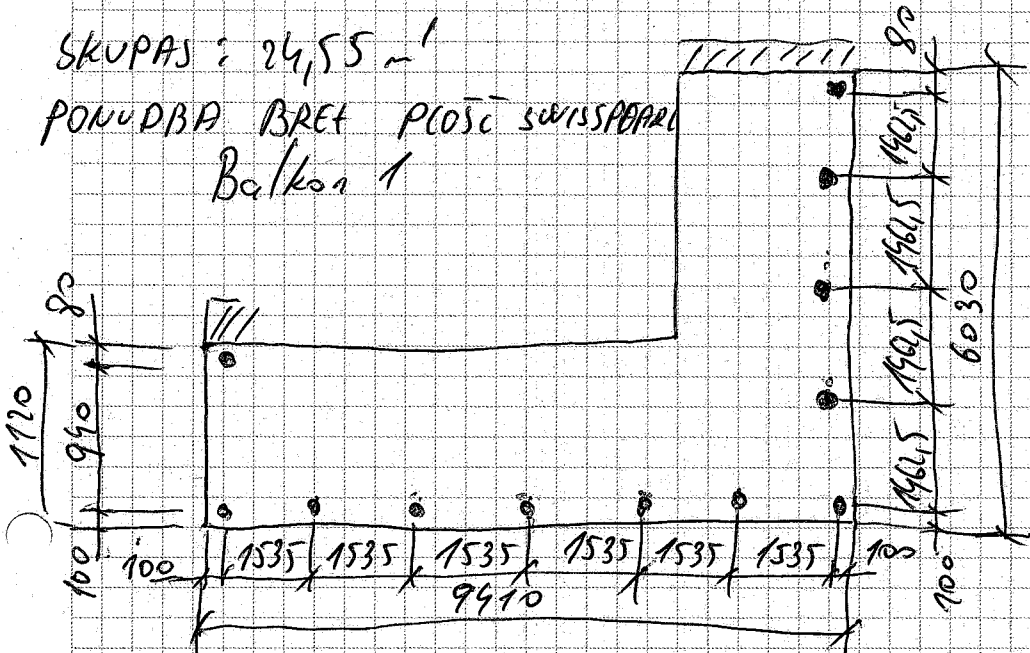 SKUPAJ : 24,55 m'
PONUDBA BREZ PLOŠČ SWISSPEARL
Balkon 1
80
1462,5
1462,5
1462,5
1462,5
100
6030
80
940
100
1120
100
1535
1535
1535
1535
1535
1535
100
9410